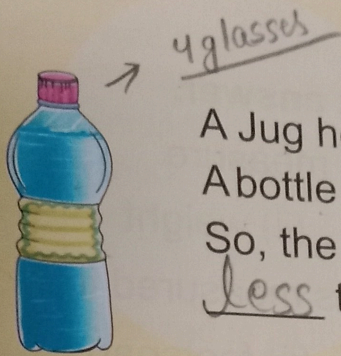 4 glasses
A Jug h
A bottle
So, the
less t